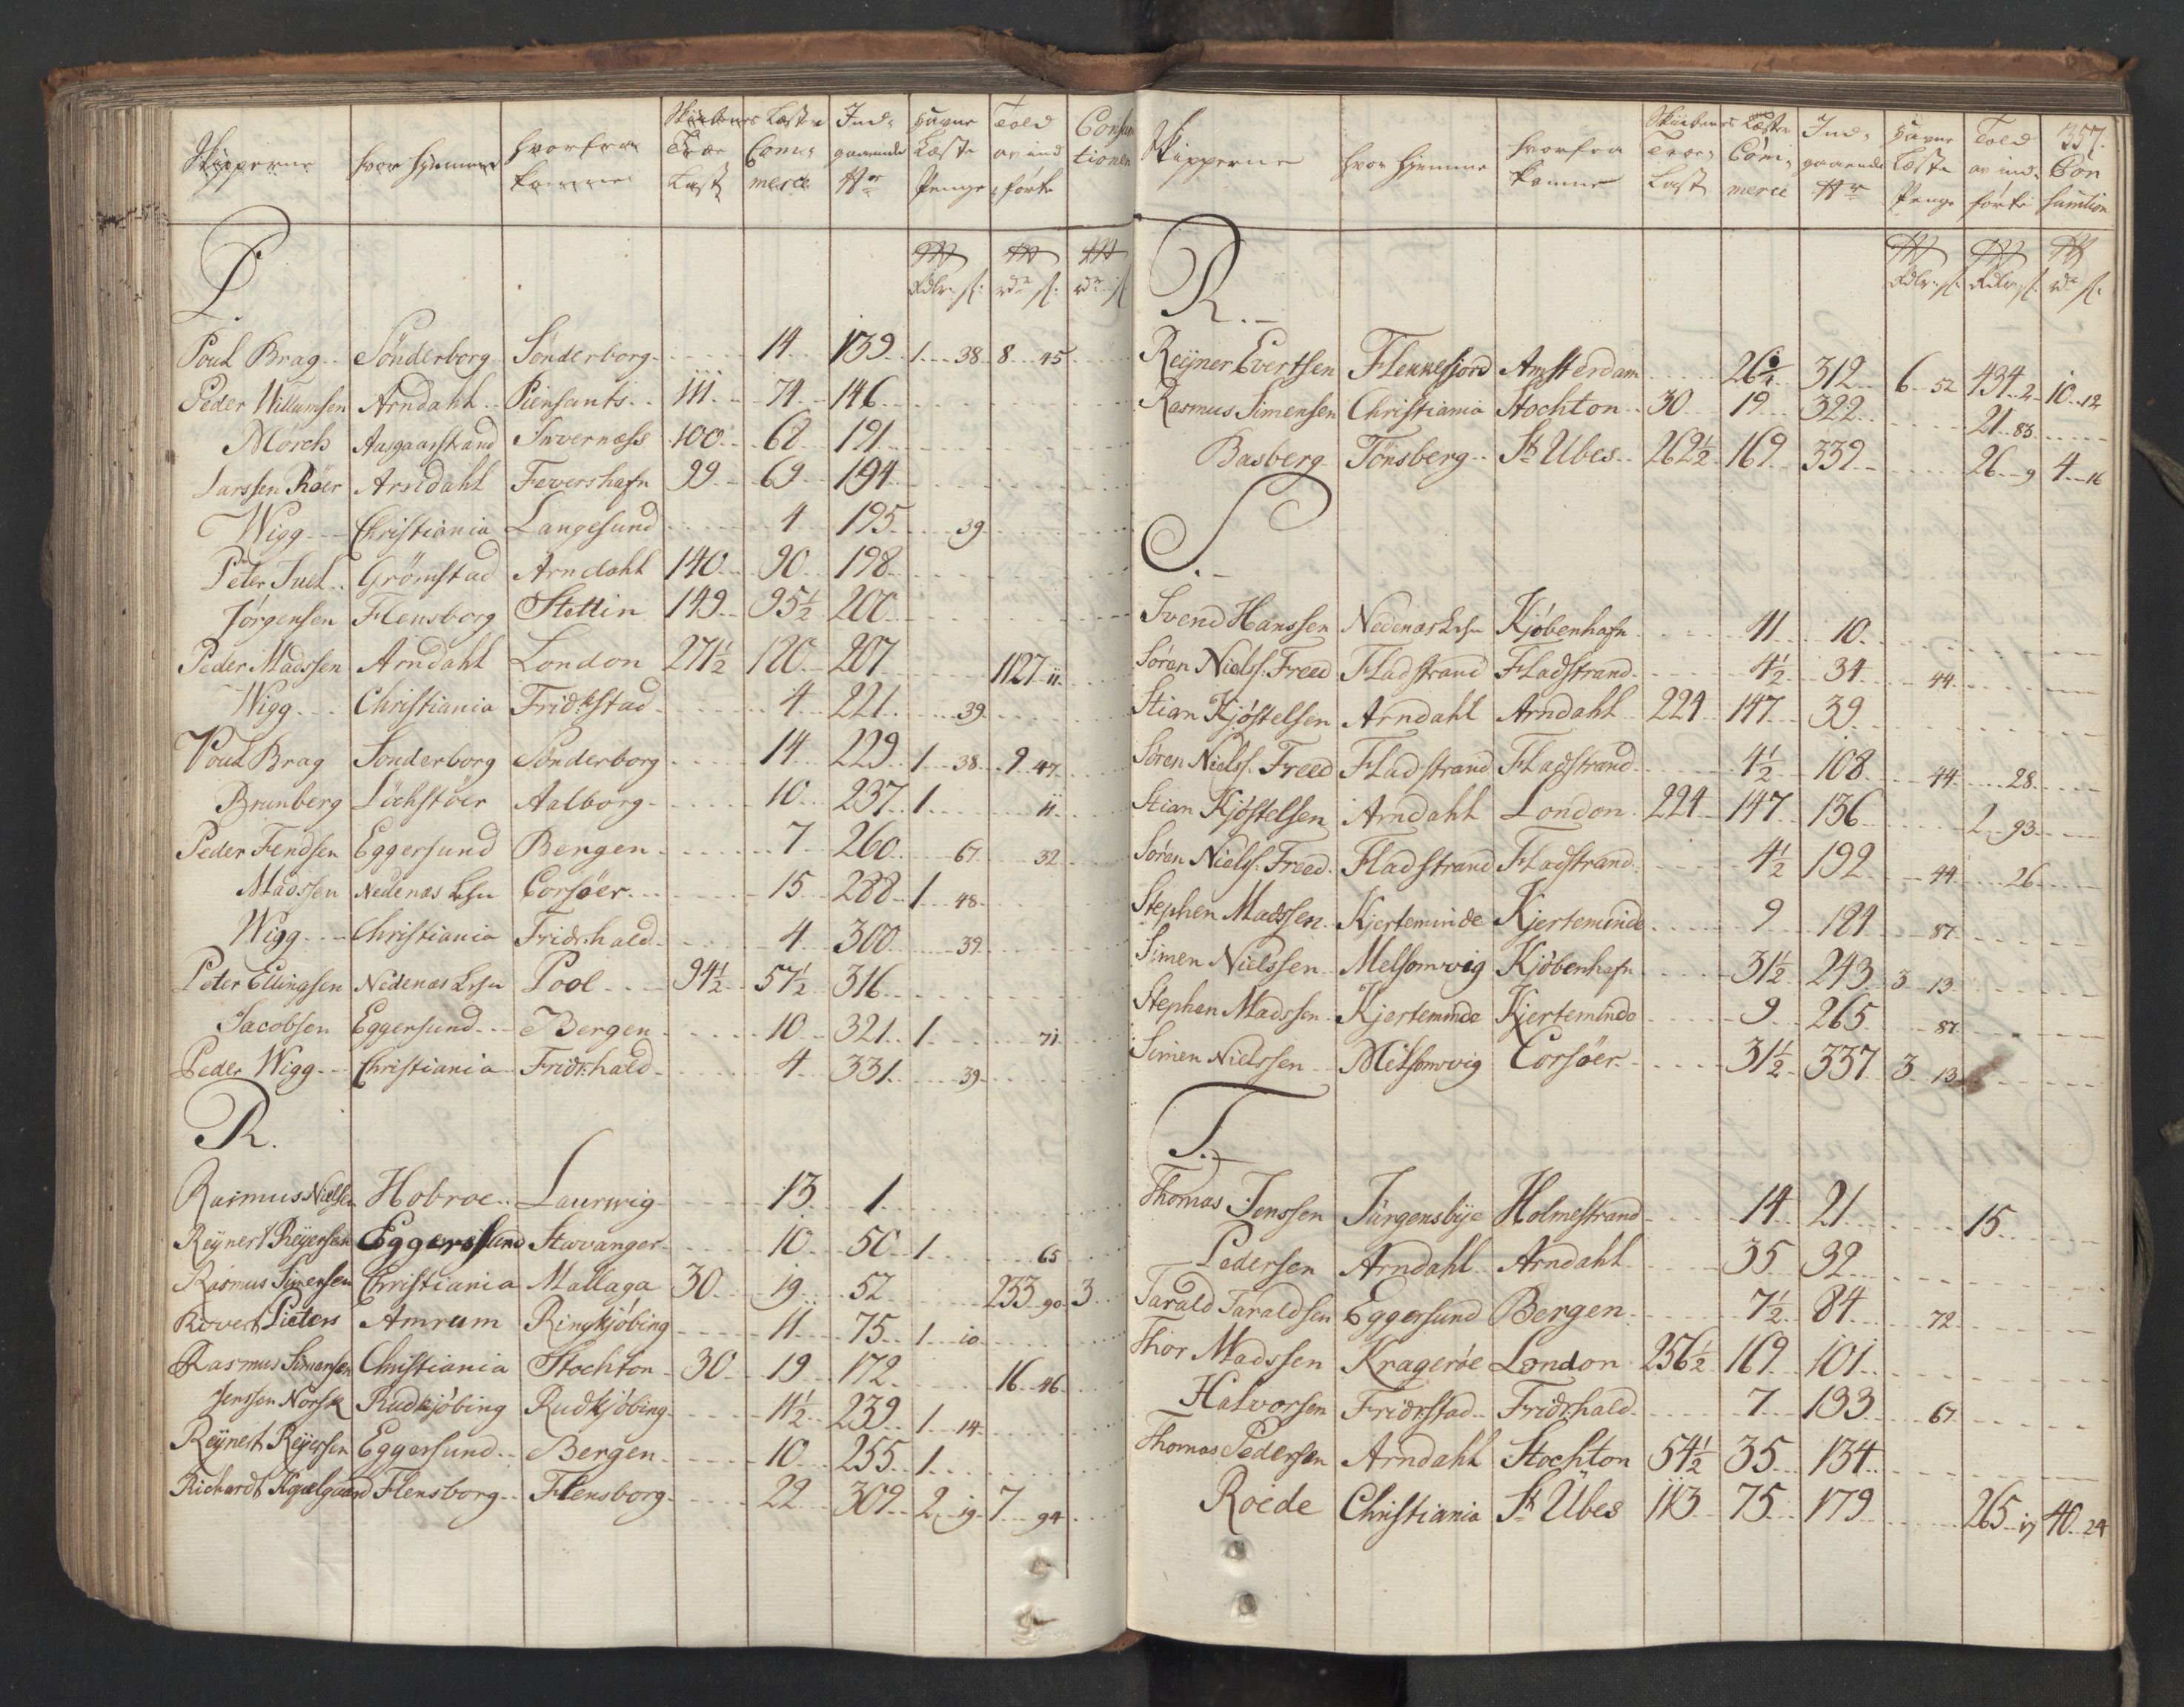 Skipperne | hvor hjemme | hvorfra kommer | Skibenes Læster Træe Læst | Comerce | Ind- gaaende No | Havne Læste Penge | Told av ind- førte | Consum tionen
P.
Rdlr. s. | rd s. | rd s.
Poul Brag | Sönderborg | Sönderborg | 14 | 139 | 1 38 | 8 45
Peder Willumsen | Arndahl | Piensants | 111 | 74 | 146
Morch | Aasgaarstrand | Inverness | 100 | 62 | 191
Larssen Röer | Arndahl | Fevershafn | 99 | 69 | 194
Wigg | Christiania | Langesund | 4 | 195 | 39
Peter Juel | Grömstad | Arndahl | 140 | 90 | 198
Jörgensen | Flensborg | Stettin | 149 | 95½ | 200
Peder Madssen | Arndahl | London | 271½ | 180 | 207 | 1127 11
Wigg | Christiania | Fridrstad | 4 | 221 | 39
Poul Brag | Sonderborg | Sönderborg | 14 | 229 | 1 38 | 9 47
Brunberg | Löchstöer | Aalborg | 10 | 237 | 1 | 11
Peder Fendsen | Eggersund | Bergen | 7 | 260 | 67 | 32
Madssen | Nedenæs Lehn | Corsöer | 15 | 288 | 1 48
Wigg | Christiania | Fridrhald | 4 | 300 | 39
Peter Ellingsen | Nedenæs Lehn | Pool | 94½ | 57½ | 316
Jacobsen | Eggersund | Bergen | 10 | 321 | 1 | 71
Peder Wigg | Christiania | Fridrhald | 4 | 331 | 39
R.
Rasmus Nielsen | Hobroe | Laurwig | 13 | 1
Reÿnert Reÿersen | Eggersund | Stavanger | 10 | 50 | 1 | 65
Rasmus Simensen | Christiania | Mallaga | 30 | 19 | 52 | 233 90 | 3
Rovert Pieters | Amrum | Ringkjöbing | 11 | 75 | 1 10
Rasmus Simensen | Christiania | Stochton | 30 | 19 | 172 | 16 46
Jenssen Norsk | Rudkjöbing | Rudkjöbing | 11½ | 239 | 1 14
Reÿnert Reÿersen | Eggersund | Bergen | 10 | 255 | 1
Richardt Kjælgaard | Flensborg | Flensborg | 22 | 309 | 2 19 | 7 94
357.
Skipperne | hvor hjemme | hvorfra komme | Skibenes Læster Træe- Læst | Com- merce | Ind- gaaende No | Havne Læste Penge | Told av ind- førte | Con sumtion
R.
Rdlr. s. | Rdlr. s. | rd s.
Reÿner Evertsen | Flekkefiord | Amsterdam | 26¾ | 312 | 6 52 | 434 2 | 10 12
Rasmus Simensen | Christiania | Stochton | 30 | 19 | 322 | 21 83
Basberg | Tönsberg | St Ubes | 262½ | 169 | 339 | 26 9 | 4 16
S.
Svend Hanssen | Nedenæs Lehn | Kjöbenhafn | 11 | 10
Sören Nielss. Freed | Fladstrand | Fladstrand | 4½ | 34 | 44
Stian Kjöstelsen | Arndahl | Arndahl | 224 | 147 | 39
Sören Nielss. Freed | Fladstrand | Fladstrand | 4½ | 108 | 44 | 28
Stian Kjöstelsen | Arndahl | London | 224 | 147 | 136 | 2 93
Sören Nielss. Freed | Fladstrand | Fladstrand | 4½ | 192 | 44 | 26
Stephen Madssen | Kjerteminde | Kjerteminde | 9 | 184 | 87
Simen Nielssen | Melsomvig | Kjöbenhafn | 31½ | 243 | 3 13
Stephen Madssen | Kjerteminde | Kjerteminde | 9 | 265 | 87
Simen Nielssen | Melsomvig | Corsöer | 31½ | 337 | 3 13
T.
Thomas Jenssen | Jürgensbÿe | Holmestrand | 14 | 21 | 15
Pedersen | Arndahl | Arndahl | 35 | 32
Tarald Taraldsen | Eggersund | Bergen | 7½ | 84 | 72
Thor Madssen | Krageröe | London | 256½ | 169 | 101
Halvorsen | Fridrstad | Fridrhald | 7 | 133 | 67
Thomas Pedersen | Arndahl | Stochton | 54½ | 35 | 134
Roede | Christiania | St Ubes | 113 | 75 | 179 | 265 17 | 40 24